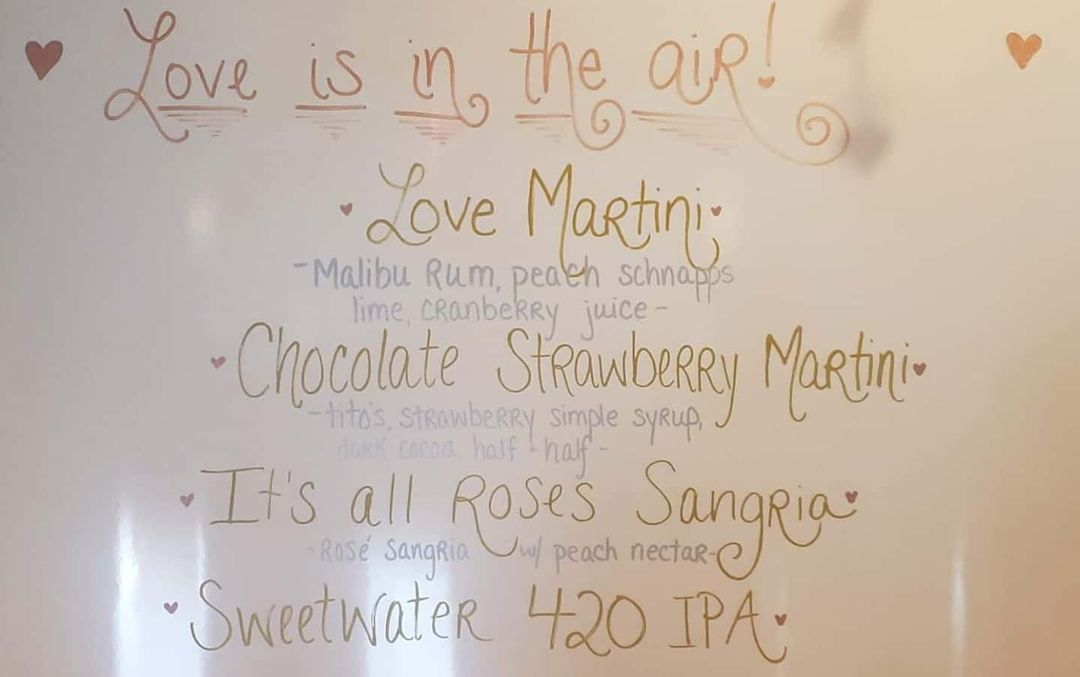 Love is in the air!
Love Martini
-Malibu Rum, peach schnapps
lime, cranberry juice-
Chocolate Strawberry Martini
-tito's, strawberry simple syrup,
dark cocoa, half + half-
It's all Roses Sangria
-Rosé Sangria w/ peach nectar-
Sweetwater 420 IPA